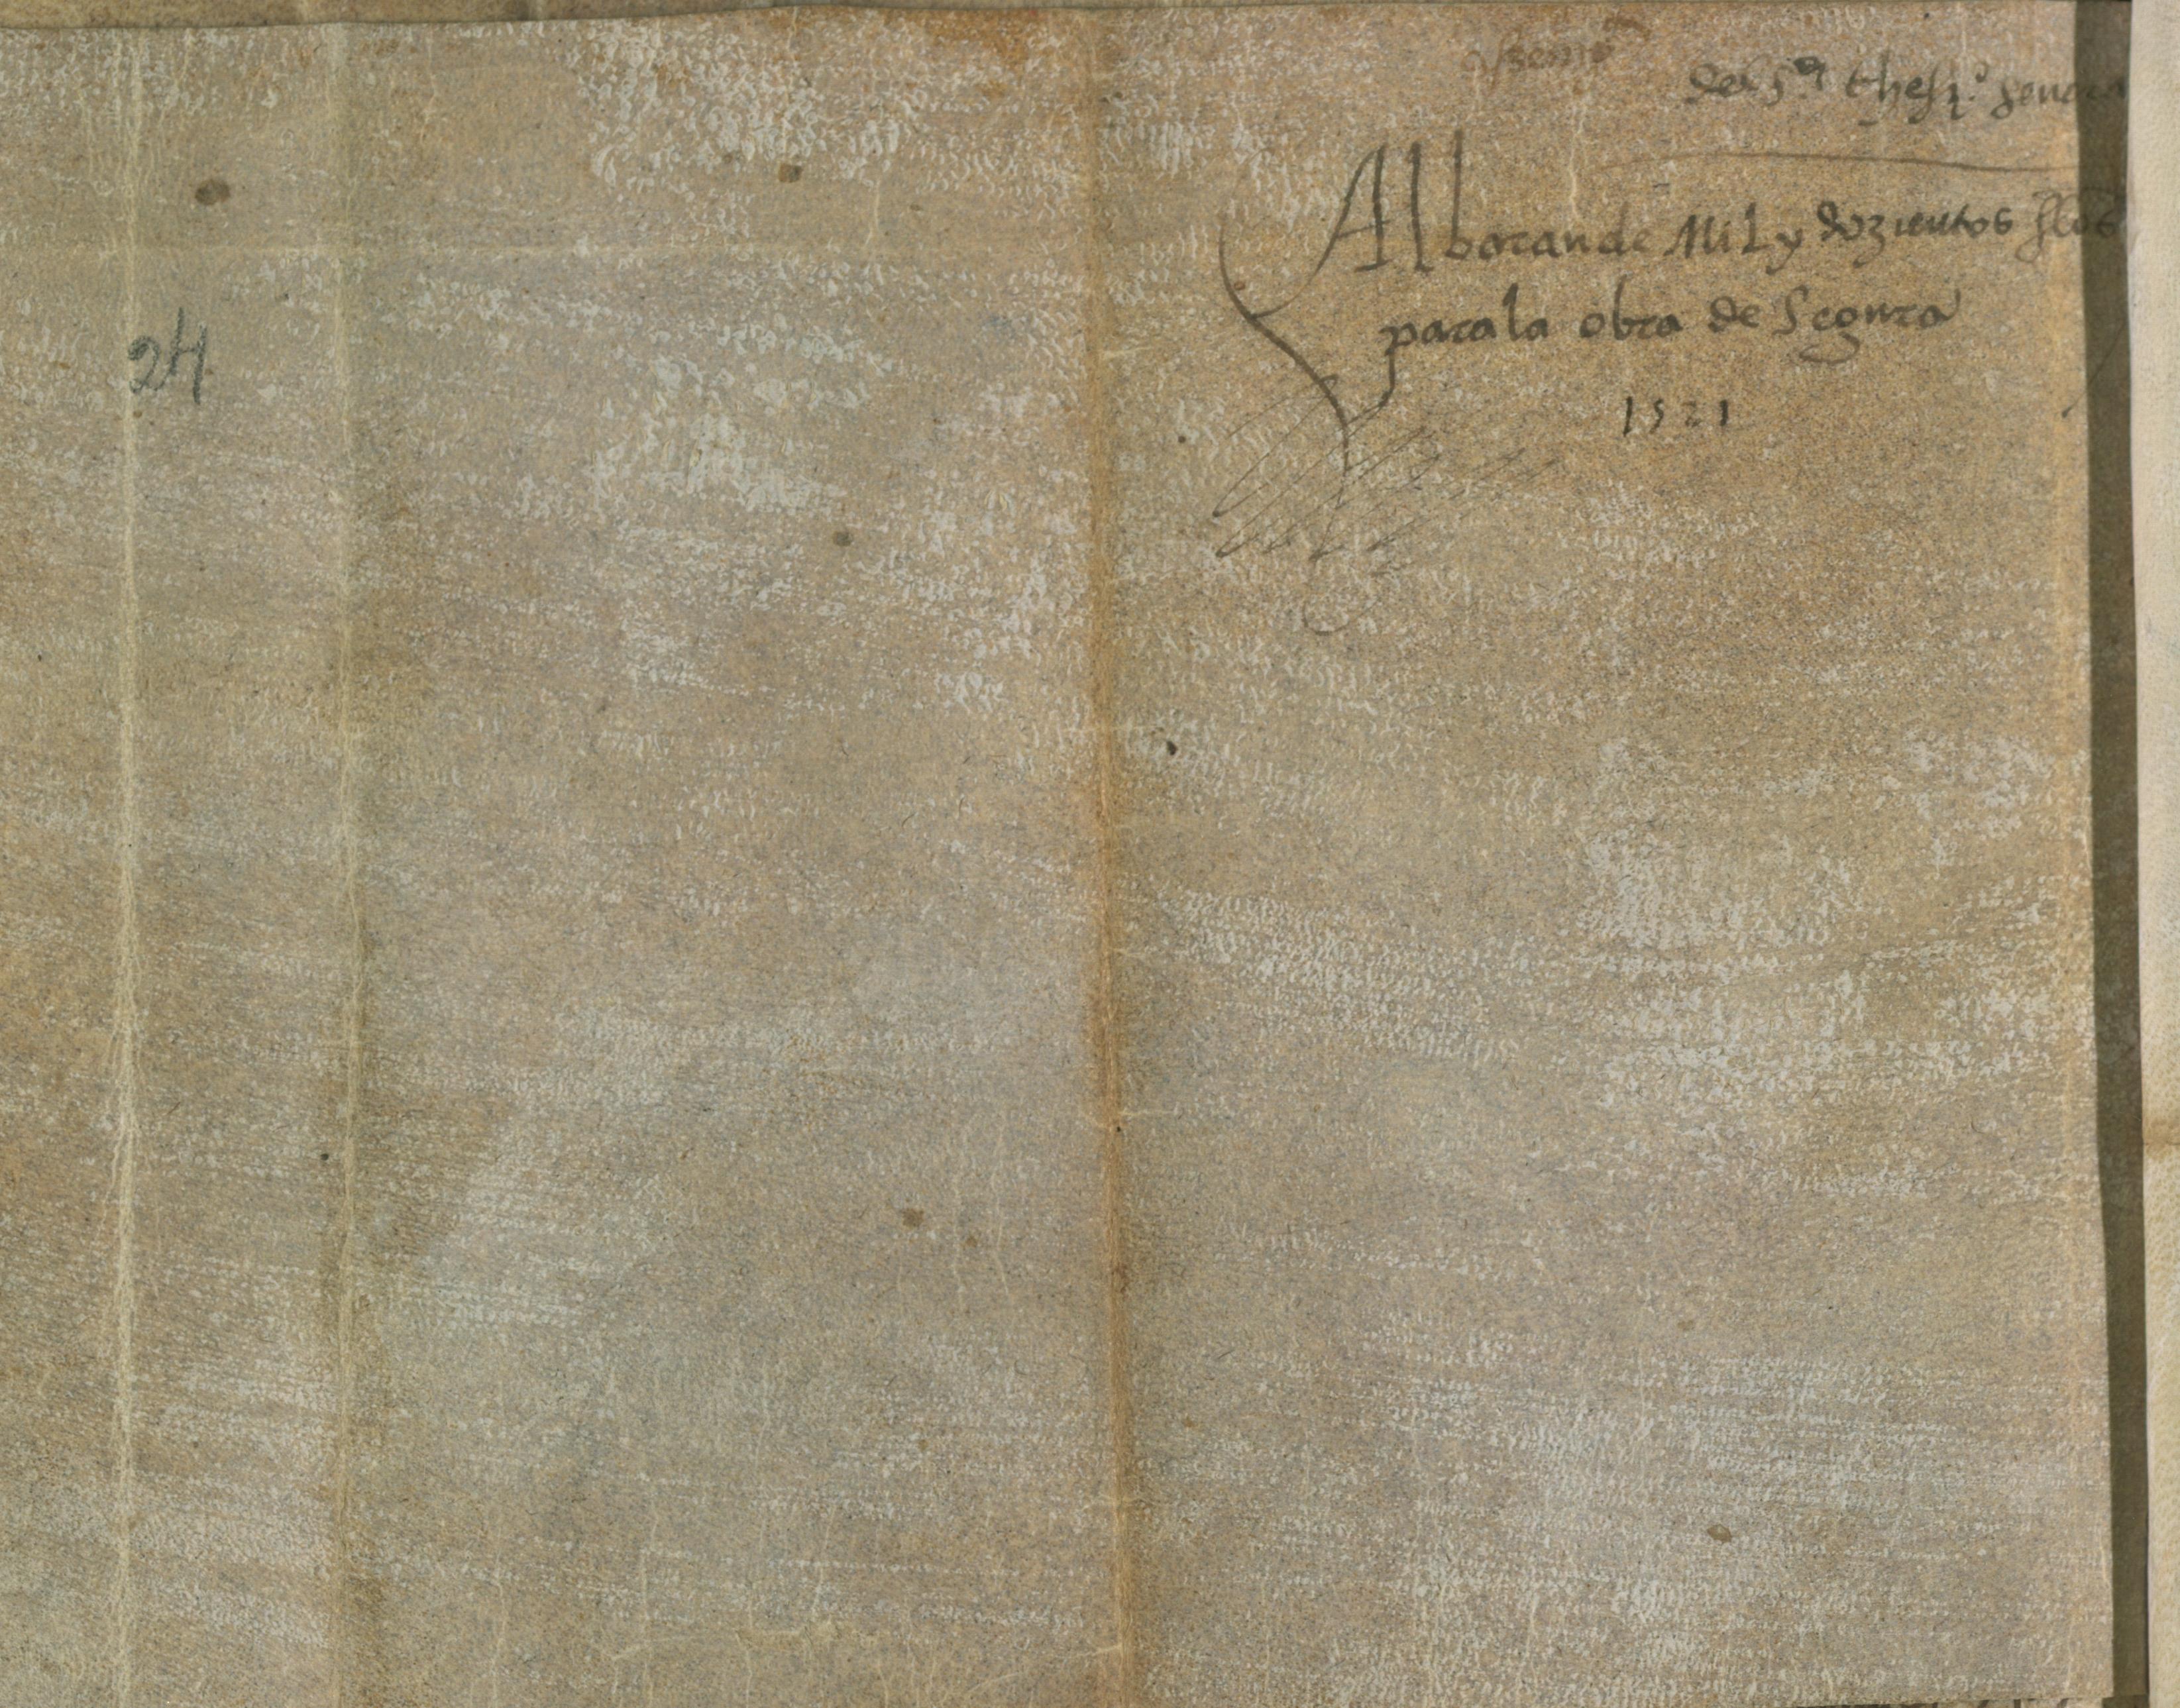 del s.or thes.o genera
Albaran de Mil y dozientos flos
para la obra de Segura
1521
24